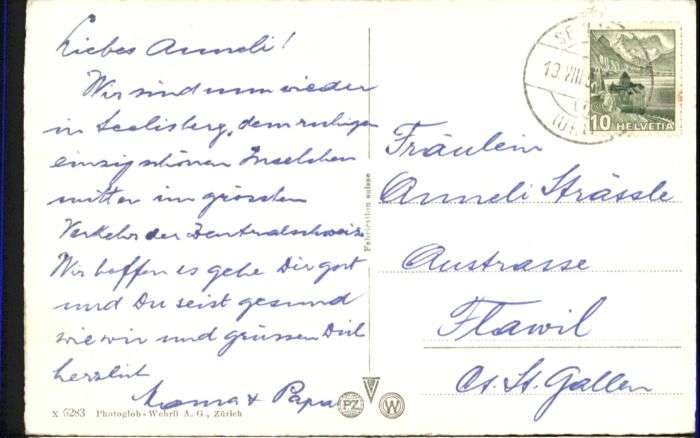 Liebes Anneli!
Wir sind nun wieder
in Seelisberg, dem ruhigen
einzig schönen Inselchen
mitten im grössten
Verkehr der Zentralschweiz.
Wir hoffen es gehe Dir gort
und Du seist gesund
wie wir und grüssen Dich
herzlich
Mama + Papa
X 6283 Photoglob-Wehrli A. G., Zürich
Fabrication suisse
PZ W
SE
19.VIII.
10 HELVETIA
Fräulein
Anneli Strässle
Austrasse
Flawil
Ct. St. Gallen